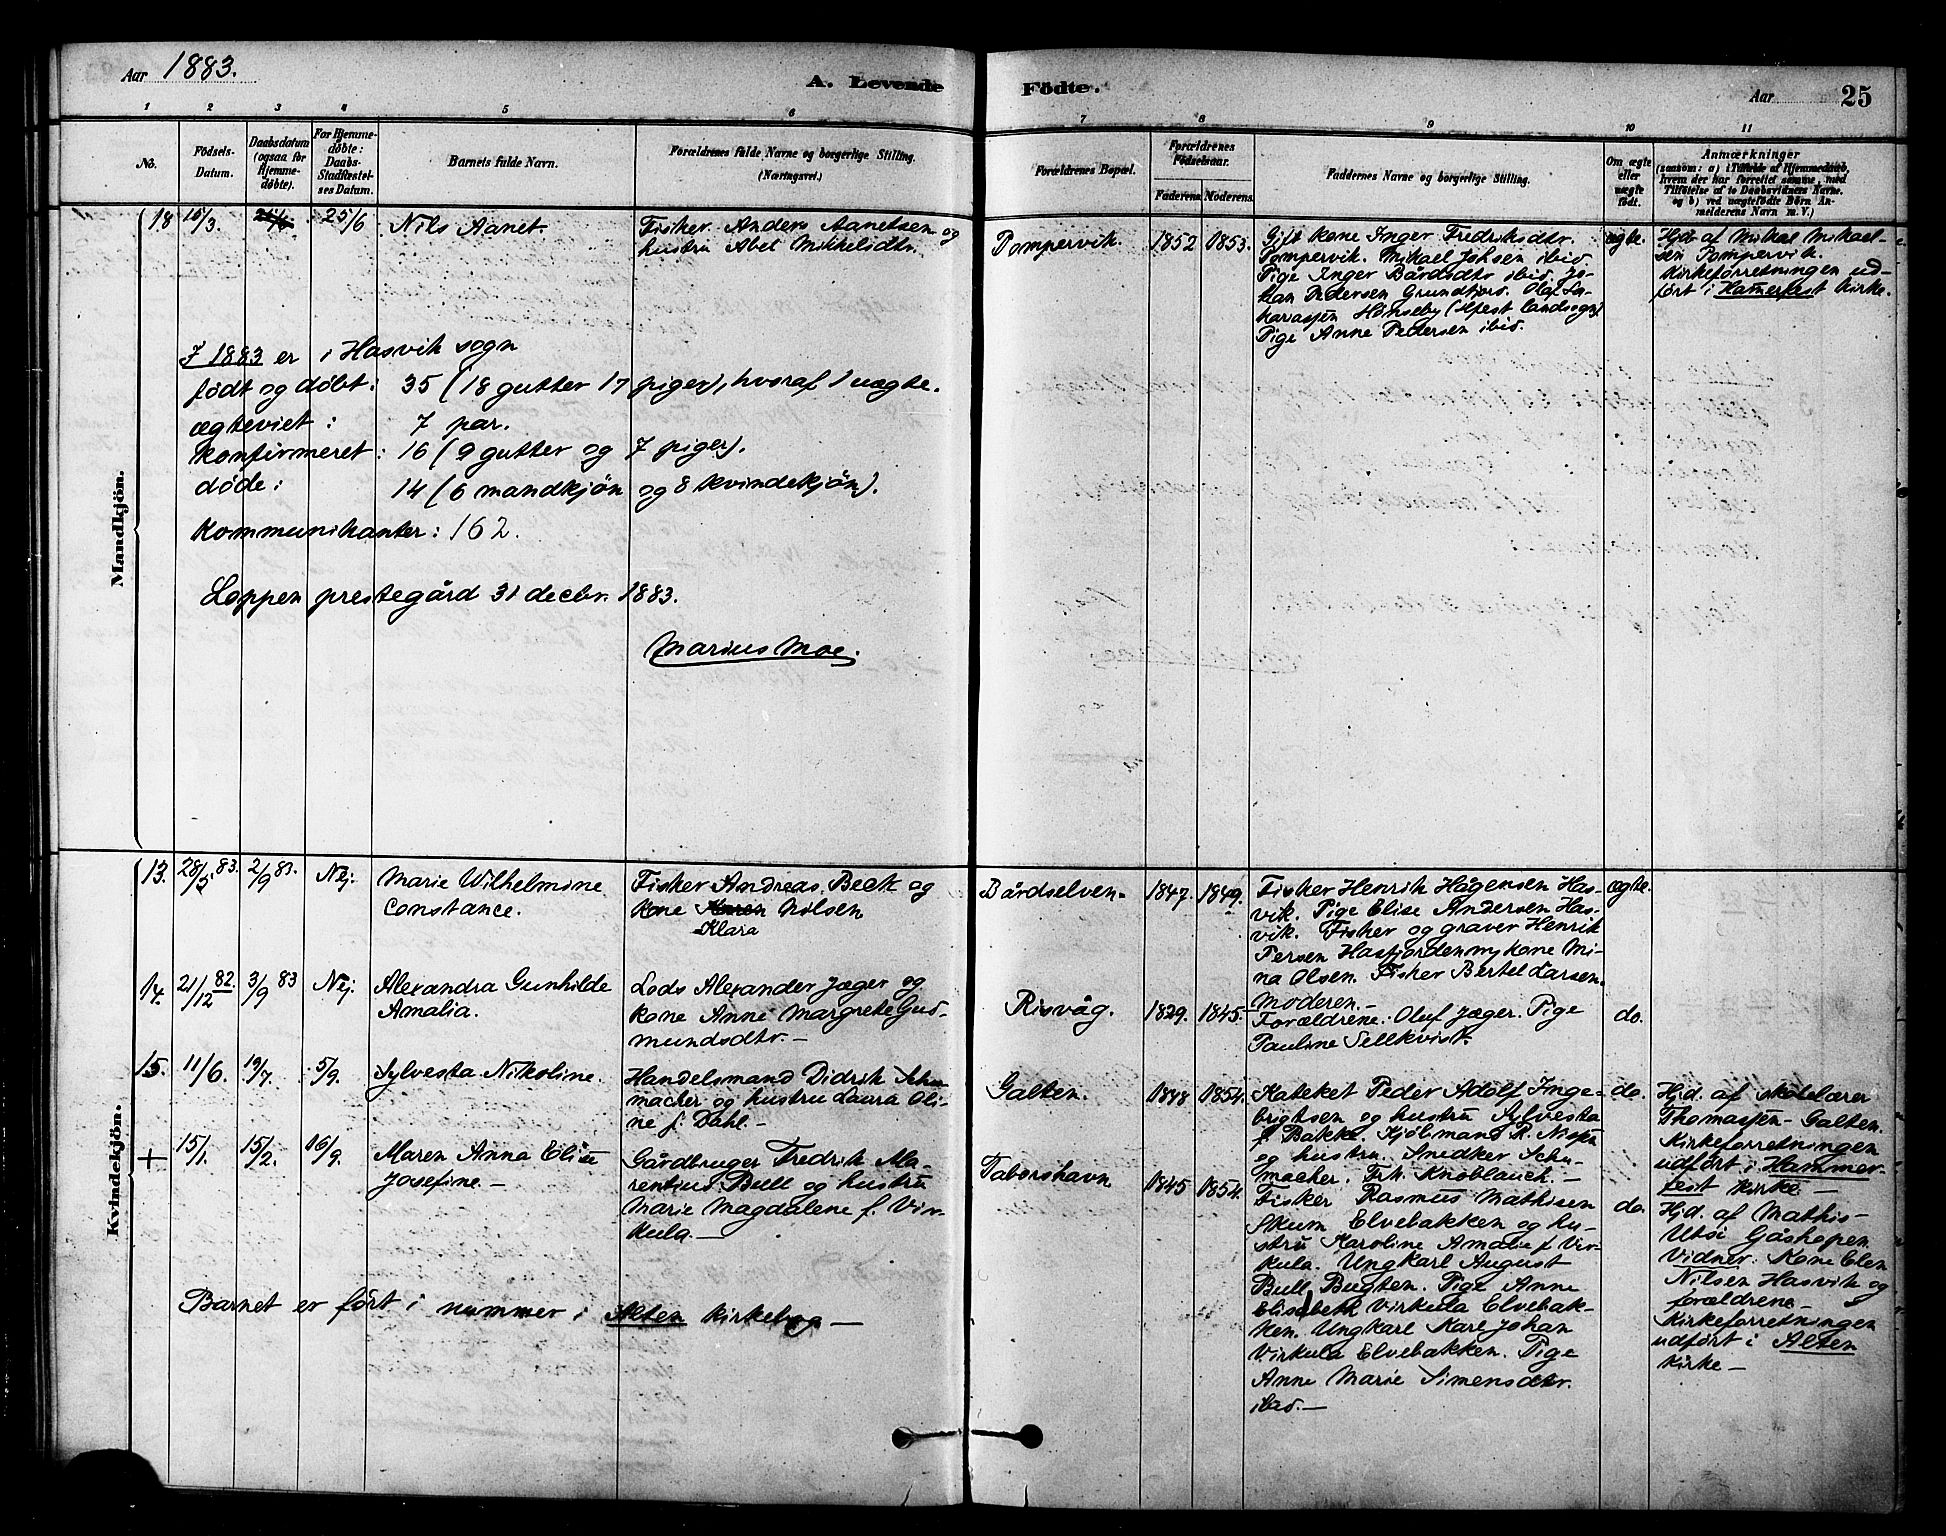 Aar 1883.
A. Levende Födte.
Aar 25
1 2 3 4 5 6 7 8 9 10 11
No.
Födsels-
Datum.
Daabsdatum
(ogsaa for
Hjemme-
døbte).
For Hjemme-
døbte:
Daabs-
Stadfæstel-
ses Datum.
Barnets fulde Navn.
Forældrenes fulde Navne og borgerlige Stilling.
(Næringsvei.)
Forældrenes Bopæl.
Forældrenes
Födselsaar.
Faderens. Moderens.
Faddernes Navne og borgerlige Stilling.
Om ægte
eller
uægte
født.
Anmærkninger
(saasom: a) i Tilfælde af Hjemmedaab,
hvem der har forrettet samme, med
Tilføielse af to Daabsvidners Navne.
og b) ved uægtefødte Børn An-
melderens Navn m. V.)
Mandkjön.
18 15/3. 25/6 25/6 Nils Aanet.
Fisker Anders Aanetsen og
hustru Abet Mikkelsdtr.
Pompervik. 1852 1853.
Gift kone Inger Fredriksdtr.
Pompervik. Mikael Johsen ibid.
Pige Inger Bårdsdtr ibid. Jo-
han Pedersen Grundfjord. Olaf Za-
kariassen Hönseby (Hfest landsogn)
Pige Anne Pedersen ibid.
ægte.
Hjd. af Mikal Mikael-
sen Pompervik.
Kirkeforretningen ud-
ført i Hamerfest kirke.
I 1883 er i Hasvik sogn
født og døbt: 35 (18 gutter 17 piger), hvoraf 1 uægte.
ægteviet: 7 par.
konfirmeret: 16 (9 gutter og 7 piger).
døde: 14 (6 mandkjön og 8 kvindekjön).
kommunikanter: 162.
Loppen prestegård 31 decbr. 1883.
Marius Moe.
Kvindekjön.
13. 28/5 83. 2/9 83. Nej. Marie Wilhelmine
Constance.
Fisker Andreas Beck og
kone Karen Nilsen
Klara
Bårdselven. 1847. 1849.
Fisker Henrik Hågensen Has-
vik. Pige Elise Andersen Has-
vik. Fisker og graver Henrik
Persen Hasfjorden m kone Mi-
na Olsen. Fisker Bertel Larsen.
Moderen.—
ægte.
14. 21/12 82. 3/9 83 Nej. Alexandra Gunhilde
Amalia.
Lods Alexander Jæger og
kone Anne Margrete Gud-
mundsdtr.—
Risvåg. 1829. 1845.
Forældrene. Oluf Jæger. Pige
Pauline Sellkvist.
do.
15. 11/6. 19/7. 5/9. Sylvesta Nikoline.
Handelsmand Didrik Schu-
macher og hustru Laura Oli-
ne f. Dahl.—
Galten. 1848 1854.
Kateket Peder Adolf Inge-
brigtsen og hustru Sylvesta
f. Bakke. Kjøbmand R. Nissen
og hustru. Snedker Schu-
macher. Frk. Knoblauch.—
do.
Hjd. af skolelærer
Thomassen - Galten.
Kirkeforretningen
udført i Hammer-
fest kirke.—
+ 15/1. 15/2. 16/9. Maren Anna Elise
Josefine.—
Gårdbruger Fredrik Ma-
rentius Bull og hustru
Marie Magdalene f. Vir-
kula.—
Taborshavn 1845 1854.
Fisker Rasmus Mathisen
Skum Elvebakken og hu-
stru Karoline Amalie f Vir-
kula. Ungkarl August
Bull Bugten. Pige Anne
Elisabeth Virkula Elvebak-
ken. Ungkarl Karl Johan
Virkula Elvebakken. Pige
Anne Marie Simensdtr.
ibid.—
do.
Hjd. af Mathis-
Utsi Gåshopen.
Vidner: Kone Elen
Nilsen Hasvik og
forældrene—
Kirkeforretningen
udført i Alten
kirke—
Barnet er ført i nummer i Alten kirkebog—